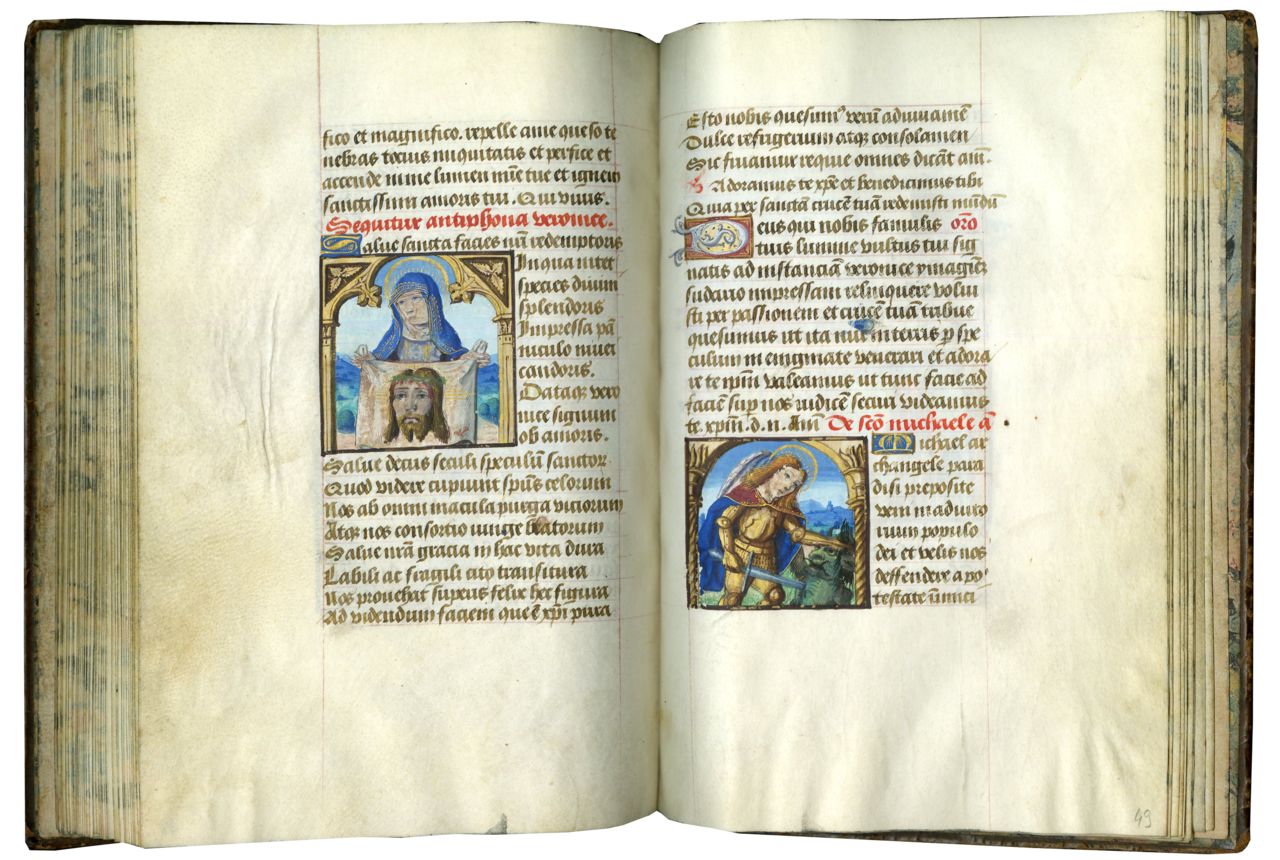 fico et magnifico. repelle a me queso te
nebras tocius iniquitatis et perfice et
accende in me lumen mẽ tue et ignem
sanctissimi amoris tui. Qui vivis.
Sequitur antiphona veronice.
Salve sancta facies nr̃i redemptoris
In qua nitet
species divini
splendoris
Impressa pã
niculo nivei
candoris.
Dataqȝ vero
nice signum
ob amoris.
Salve decus seculi speculũ sanctor
Quod videre cupiunt spũs celorum
Nos ab omni macula purga viciorum
Atqȝ nos consortio iunge beatorum
Salve nr̃a gracia in hac vita dura
Labili ac fragili cito transitura
Nos provehat superis felix hec figura
Ad videndum faciem que ẽ xp̃i pura
Esto nobis quesumꝰ verũ adiuuamẽ
Dulce refrigerium atqȝ consolamen
Sic fruamur requie omnes dicãt am̃.
Adoramus te xp̃e et benedicimus tibi
Quia per sanctã crucẽ tuã redemisti mũdũ
Deus qui nobis famulis or̃o
tuis lumine vultus tui sig
natis ad instanciã veronice ymaginẽ
sudario impressam relinquere volui
sti per passionem et crucẽ tuã tribue
quesumus ut ita nunc in terris p spe
culum in enigmate venerari et adora
re te ip̃m valeamus ut tunc facie ad
faciẽ sup nos iudicẽ securi videamus
te. xp̃m. d. n. Am̃ De scõ michaele ã
Michael ar
changele para
disi preposite
veni in adiuto
rium populo
dei et velis nos
deffendere a po
testate inimici
49